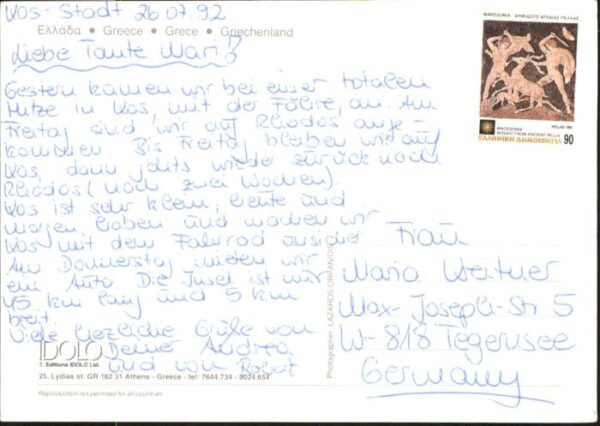 Kos-Stadt 26.07.92
Ελλάδα • Greece • Grece • Griechenland
Liebe Tante Mari!
Gestern kamen wir bei einer totalen
Hitze in Kos, mit der Fähre, an. Am
Freitag sind wir auf Rhodos ange-
kommen. Bis Freitag bleiben wir auf
Kos, dann gehts wieder zurück nach
Rhodos (noch zwei Wochen).
Kos ist sehr klein, heute und
morgen haben und machen wir
Kos mit dem Fahrrad unsicher
Am Donnerstag mieten wir
ein Auto. Die Insel ist nur
45 km lang und 5 km
breit.
Viele herzliche Grüße von
Deiner Andrea
und von Robert
Frau
Maria Weitner
Max-Joseph-Str 5
W-818 Tegernsee
Germany
MACEDONIA
HELLAS 1992
MACEDONIA
MOSAIC FROM ANCIENT PELLA
ΕΛΛΗΝΙΚΗ ΔΗΜΟΚΡΑΤΙΑ 90
Photographer: LAZAROS ORFANIDIS
IDOLO
© Editions IDOLO Ltd.
25, Lydias st. GR 162 31 Athens - Greece - tel.: 7644.734 - 9024.654
Reproduction not permited for all countries